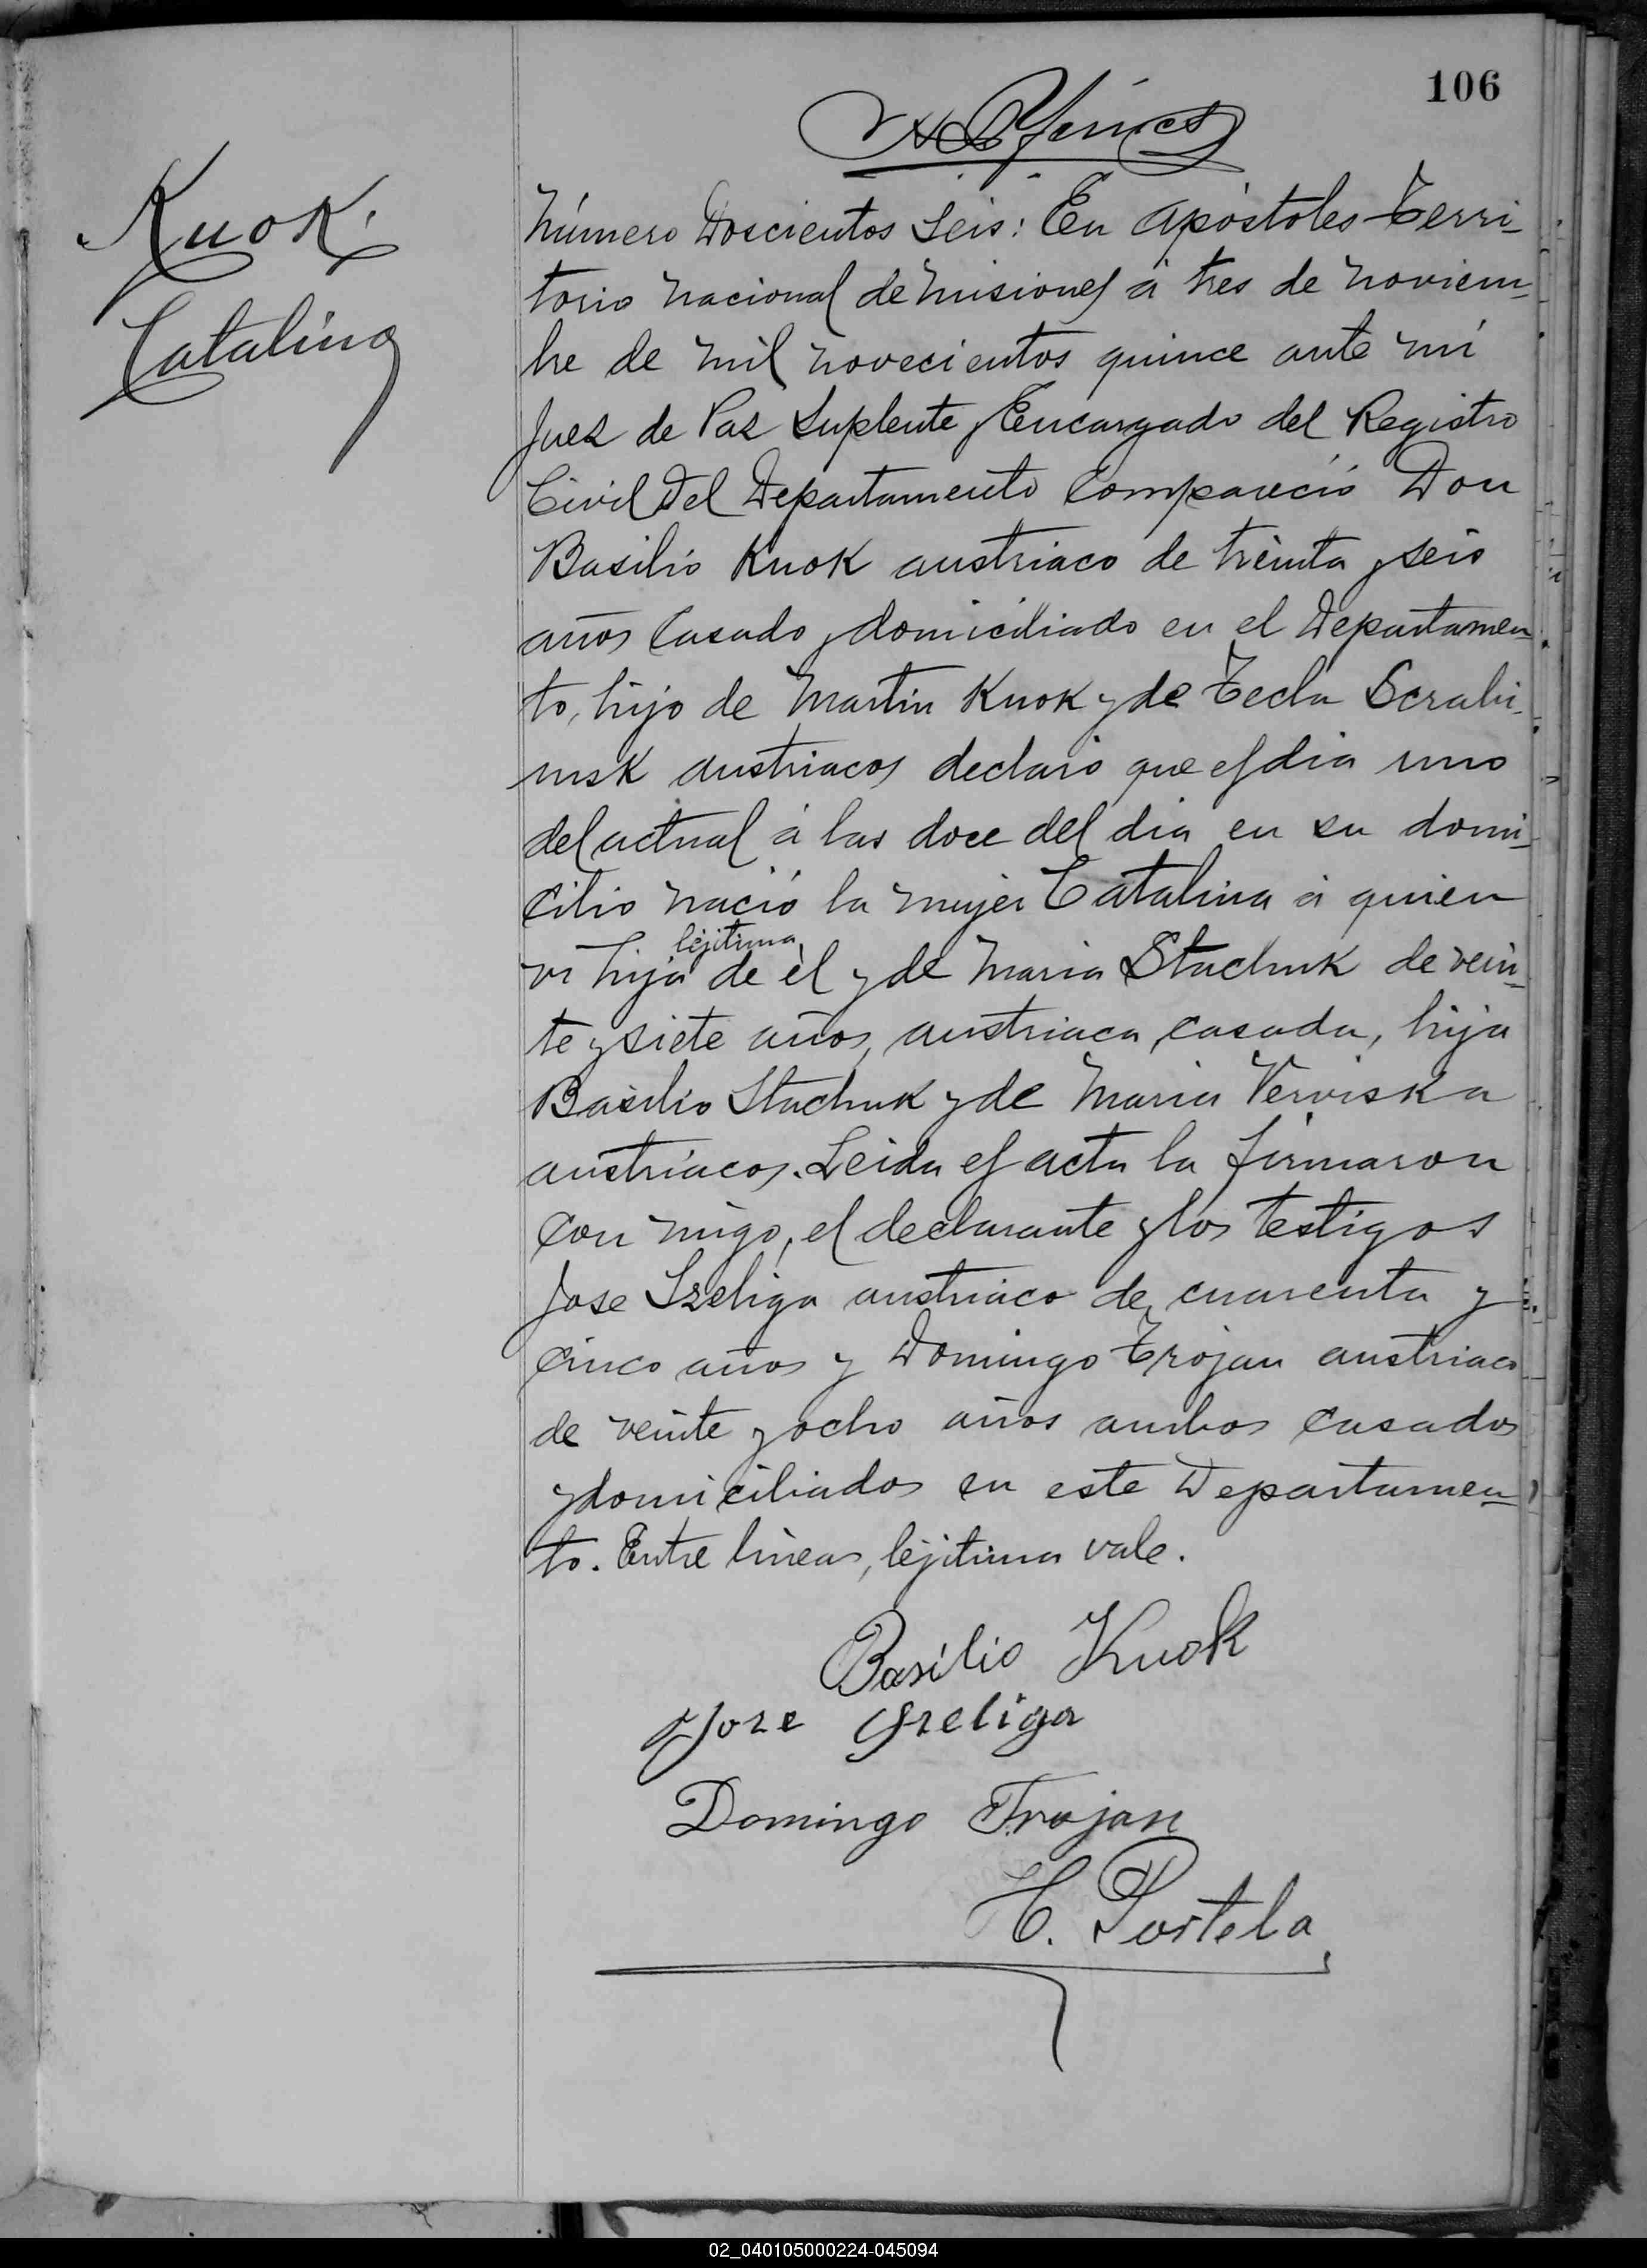 106
Kuok
Catalina
Número Doscientos Seis: En Apóstoles Terri-
torio Nacional de Misiones á tres de Noviem-
bre de mil novecientos quince ante mí
Juez de Paz Suplente y Encargado del Registro
Civil del Departamento Compareció Don
Basilio Kuok austriaco de treinta y seis
años Casado y domiciliado en el Departamen-
to, hijo de Martin Kuok y de Tecla Scrabi-
nsk austriacos declaró que el dia uno
del actual á las doce del dia en su domi-
cilio nació la mujer Catalina á quien
legítima
vi hija de él y de Maria Stachuk de vein-
te y siete años, austriaca, casada, hija
Basilio Stachuk y de Maria Verviska
austriacos. Leida el acta la firmaron
con migo, el declarante y los testigos
Jose Szeliga austriaco de cuarenta y
cinco años y Domingo Trojan austriaco
de veinte y ocho años ambos casados
y domiciliados en este Departamen-
to. Entre lineas, lejitima vale.
Basilio Kuok
Joze Szeliga
Domingo Trojan
C. Portela
02_040105000224-045094